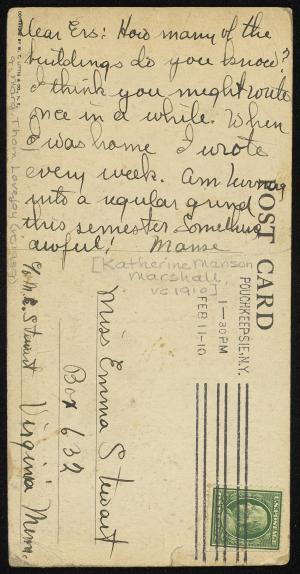 Dear Ers: How many of the
buildings do you know?
I think you might write
once in a while. When
I was home I wrote
every week. Am turning
into a regular grind
this semester Something
awful! Manse
[Katherine Manson
Marshall,
vc 1910]
POST CARD
POUGHKEEPSIE, N.Y.
1-30PM
FEB 11-10
Miss Emma Stewart
Box 632
Virginia Minn.
c/o M. E. Stewart
U.S. POSTAGE